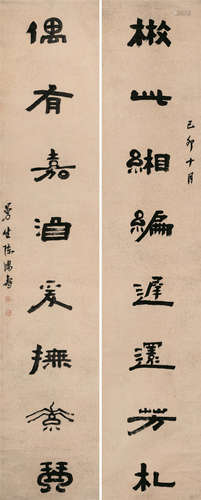 己卯十月
此緗編遲還芳札
偶有嘉酒爰撫素琴
曼生陳鴻壽